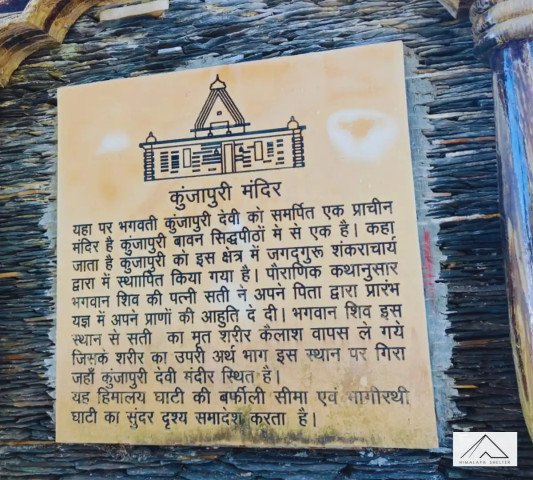 कुंजापुरी मंदिर
यहा पर भगवती कुंजापुरी देवी को समर्पित एक प्राचीन
मंदिर है कुंजापुरी बावन सिद्धपीठों में से एक है। कहा
जाता है कुंजापुरी को इस क्षेत्र में जगद्गुरू शंकराचार्य
द्वारा में स्थाापित किया गया है। पौराणिक कथानुसार
भगवान शिव की पत्नी सती ने अपने पिता द्वारा प्रारंभ
यज्ञ में अपने प्राणों की आहुति दे दी। भगवान शिव इस
स्थान से सती का मृत शरीर कैलाश वापस ले गये
जिसके शरीर का उपरी अर्थ भाग इस स्थान पर गिरा
जहाँ कुंजापुरी देवी मंदीर स्थित है।
यह हिमालय घाटी की बर्फीली सीमा एवं भागीरथी
घाटी का सुंदर दृश्य समादेश करता है।
HIMALAYA SHELTER